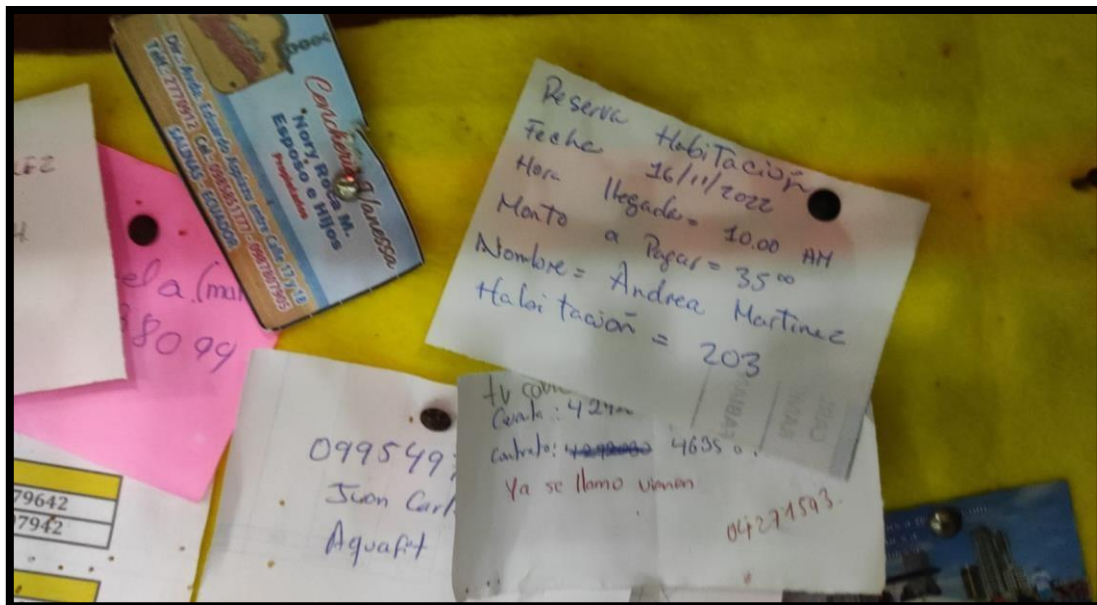 Concheria Vanessa
"Nory, Roca M.
Esposo e Hijos
Propietarios
Dir.: Avda. Eduardo Aspiazu entre Calle 17 y 18
Telf.: 2778912 Cel.:
SALINAS - ECUADOR
Reserva Habitación
Fecha 16/11/2022
Hora llegada= 10.00 AM
Monto a Pagar = 35 00
Nombre= Andrea Martinez
Habitación = 203
8099
099549
Juan Carl
Aquafit
tv
contrato: 4635
Ya se llamo vienen
04271593.
79642
7942